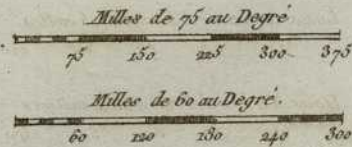 Milles de 75 au Degré
75 150 225 300 375
Milles de 60 au Degré.
60 120 180 240 300